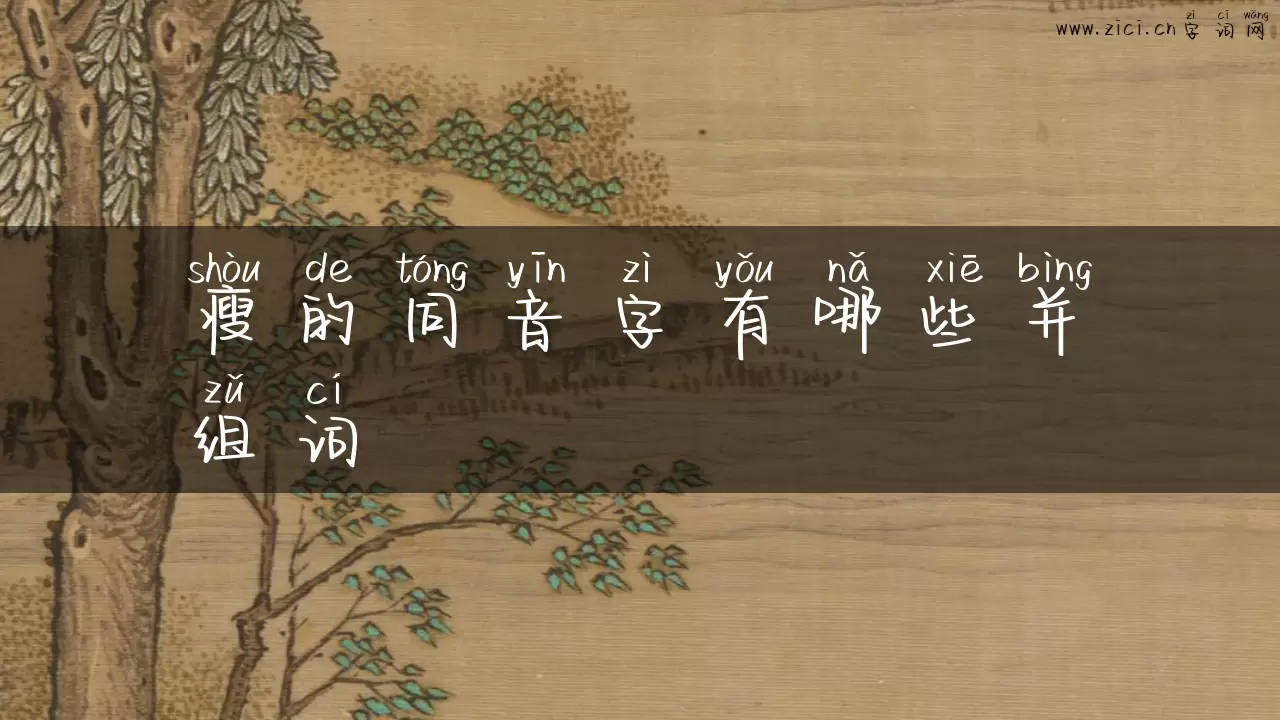 zì cí wǎng
www.zici.cn 字词网
shòu de tóng yīn zì yǒu nǎ xiē bìng
瘦的同音字有哪些并
zǔ cí
组词